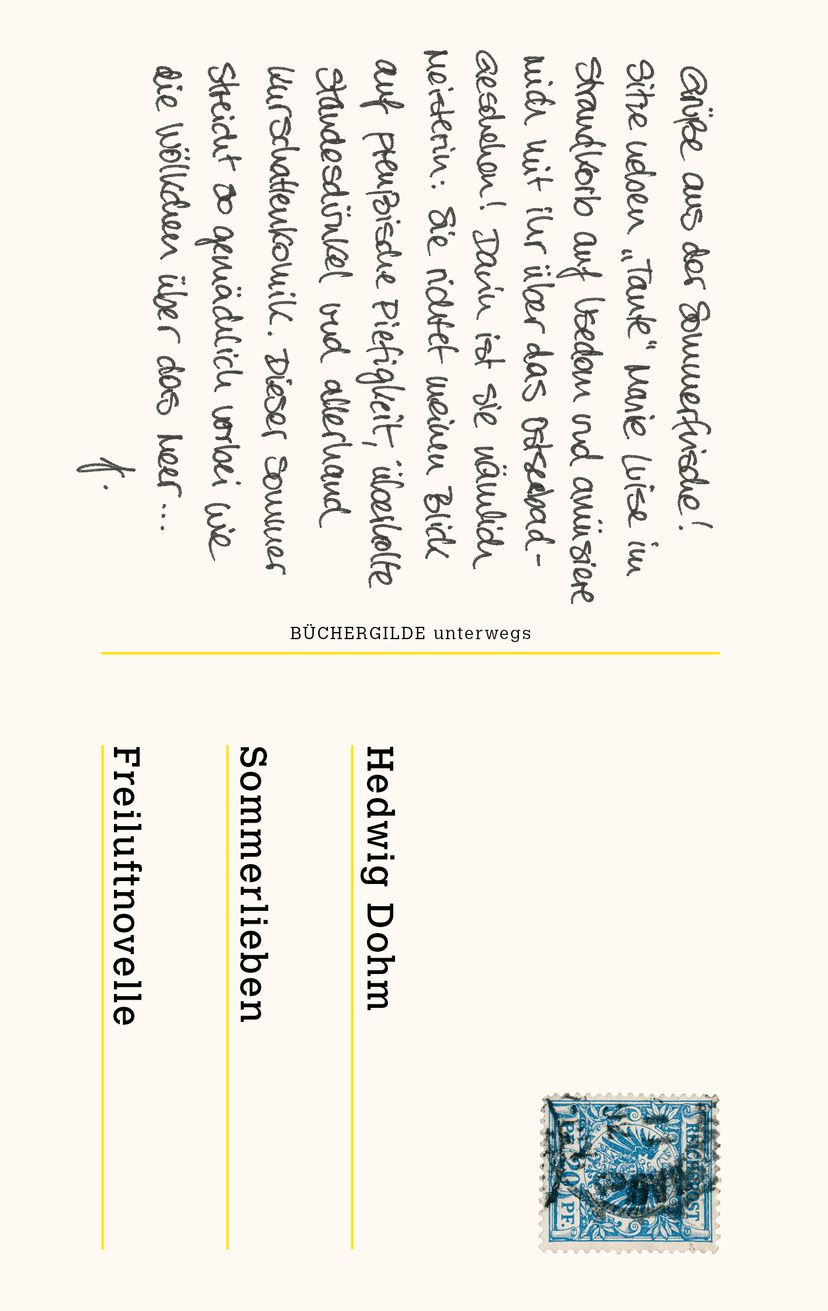 Grüße aus der Sommerfrische!
Sitze neben „Tante“ Marie Luise im
Strandkorb auf Usedom und amüsiere
mich mit ihr über das Ostseebad-
Geschehen! Darin ist sie nämlich
Meisterin: Sie richtet meinen Blick
auf preußische Piefigkeit, überholte
Standesdünkel und allerhand
Kurschattenkomik. Dieser Sommer
streicht so gemächlich vorbei wie
die Wölkchen über das Meer...
f.
BÜCHERGILDE unterwegs
Hedwig Dohm
Sommerlieben
Freiluftnovelle
REICHSPOST
20 PF.